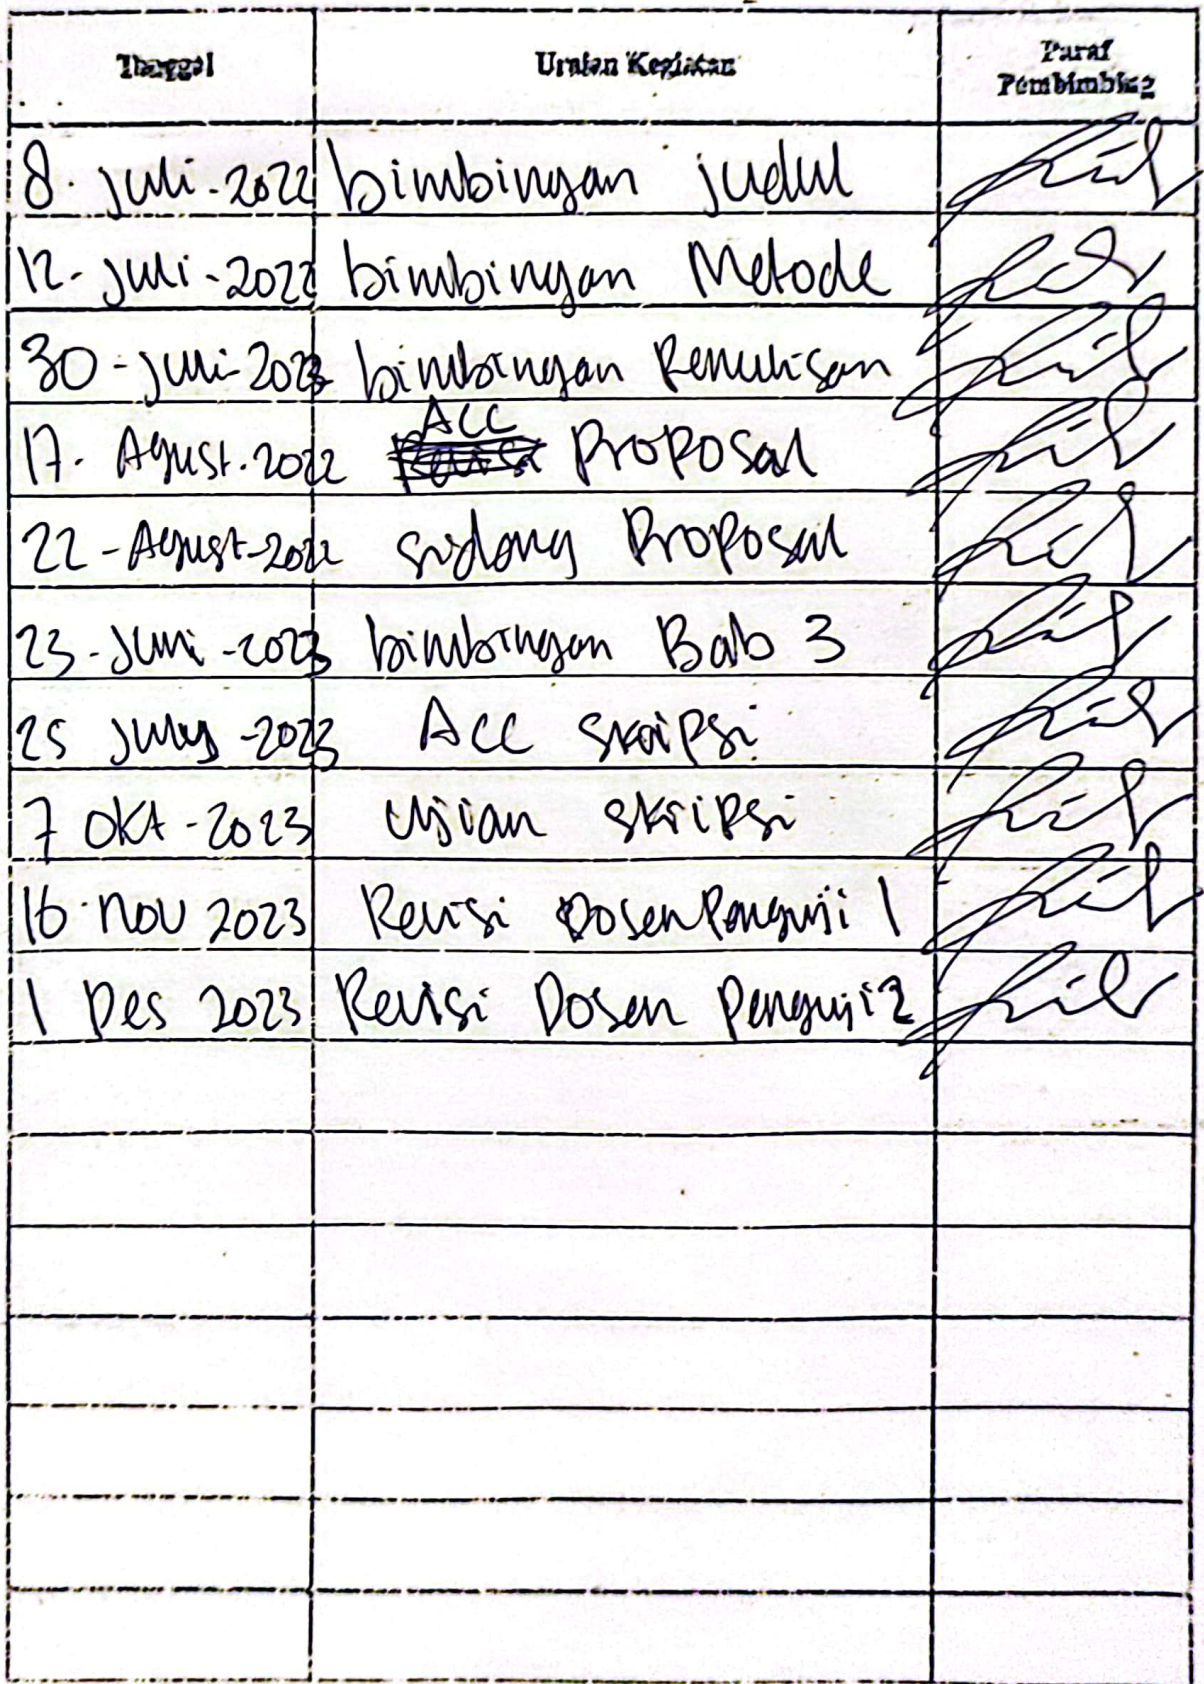 Tanggal Uraian Kegiatan Paraf
Pembimbing
8. juli - 2022 bimbingan judul
12 - juli - 2022 bimbingan Metode
30 - juli - 2022 bimbingan Penulisan
ACC
17. Agust. 2022 Proposal
22 - Agust - 2022 sidang Proposal
23 - Juni - 2023 bimbingan Bab 3
25 July - 2023 Acc skripsi
7 Okt - 2023 Ujian skripsi
16 Nov 2023 Revisi Dosen Penguji 1
1 Des 2023 Revisi Dosen Penguji 2